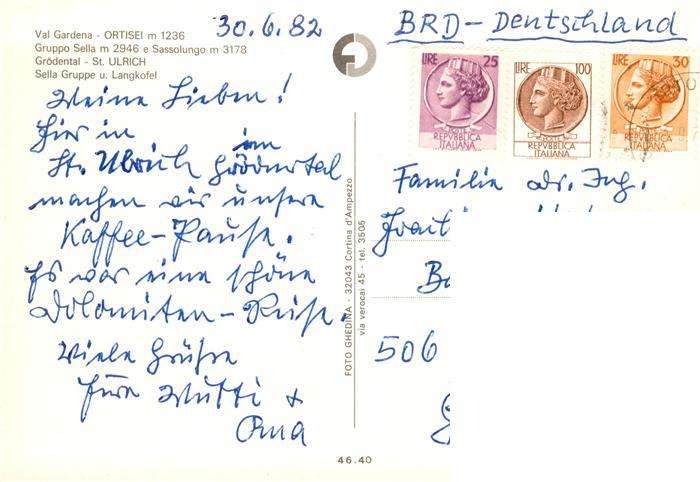 Val Gardena - ORTISEI m 1236
Gruppo Sella m 2946 e Sassolungo m 3178
Grödental - St. ULRICH
Sella Gruppe u. Langkofel
30.6.82
Meine Lieben!
Hier in
St. Ulrich im Grödnertal
machen wir unsere
Kaffee-Pause.
Es war eine schöne
Dolomiten-Reise.
Viele Grüsse
Eure Mutti +
Oma
46.40
FOTO GHEDINA - 32043 Cortina d'Ampezzo
via verocai 45 - tel. 3505
BRD-Deutschland
LIRE 25
REPVBBLICA
ITALIANA
LIRE 100
REPVBBLICA
ITALIANA
LIRE 30
REPVBBLICA
ITALIANA
Familie Dr. Ing.
506